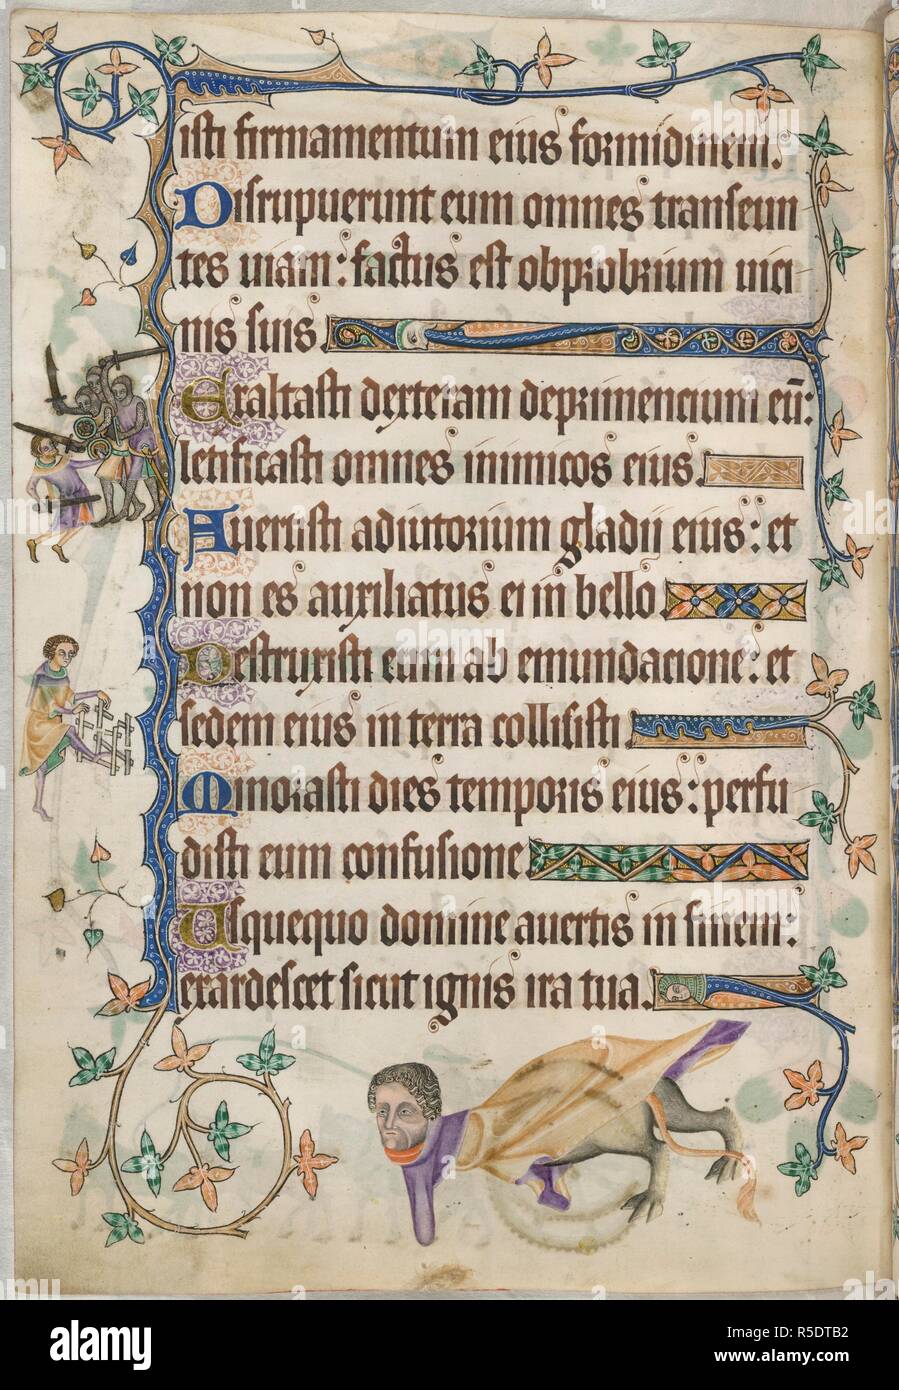 isti firmamentum eius formidinem.
Disrupuerunt eum omnes transeun
tes uiam: factus est obprobrium uici
nis suis.
Exaltasti dexteram deprimencium eū:
letificasti omnes inimicos eius.
Auertisti adiutorium gladii eius: et
non es auxiliatus ei in bello
Destruxisti eum ab emundacione: et
sedem eius in terra collisisti
Minorasti dies temporis eius: perfu
disti eum confusione
Usquequo domine auertis in finem:
exardescet sicut ignis ira tua.
alamy
Image ID: R5DTB2
www.alamy.com